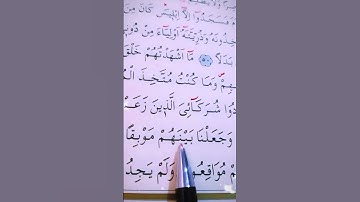 فَسَجَدُوا إِلَّا إِبْلِيسَ كَانَ مِنَ
خِذُونَهُ وَذُرِّيَّتَهُ أَوْلِيَاءَ مِنْ دُونِ
بَدَلًا ﴿٥٠﴾ مَا أَشْهَدْتُهُمْ خَلْقَ
هِمْ وَمَا كُنْتُ مُتَّخِذَ الْمُ
دُوا شُرَكَائِيَ الَّذِينَ زَعَمْ
وَجَعَلْنَا بَيْنَهُمْ مَوْبِقًا
مْ مُوَاقِعُو وَلَمْ يَجِدُ